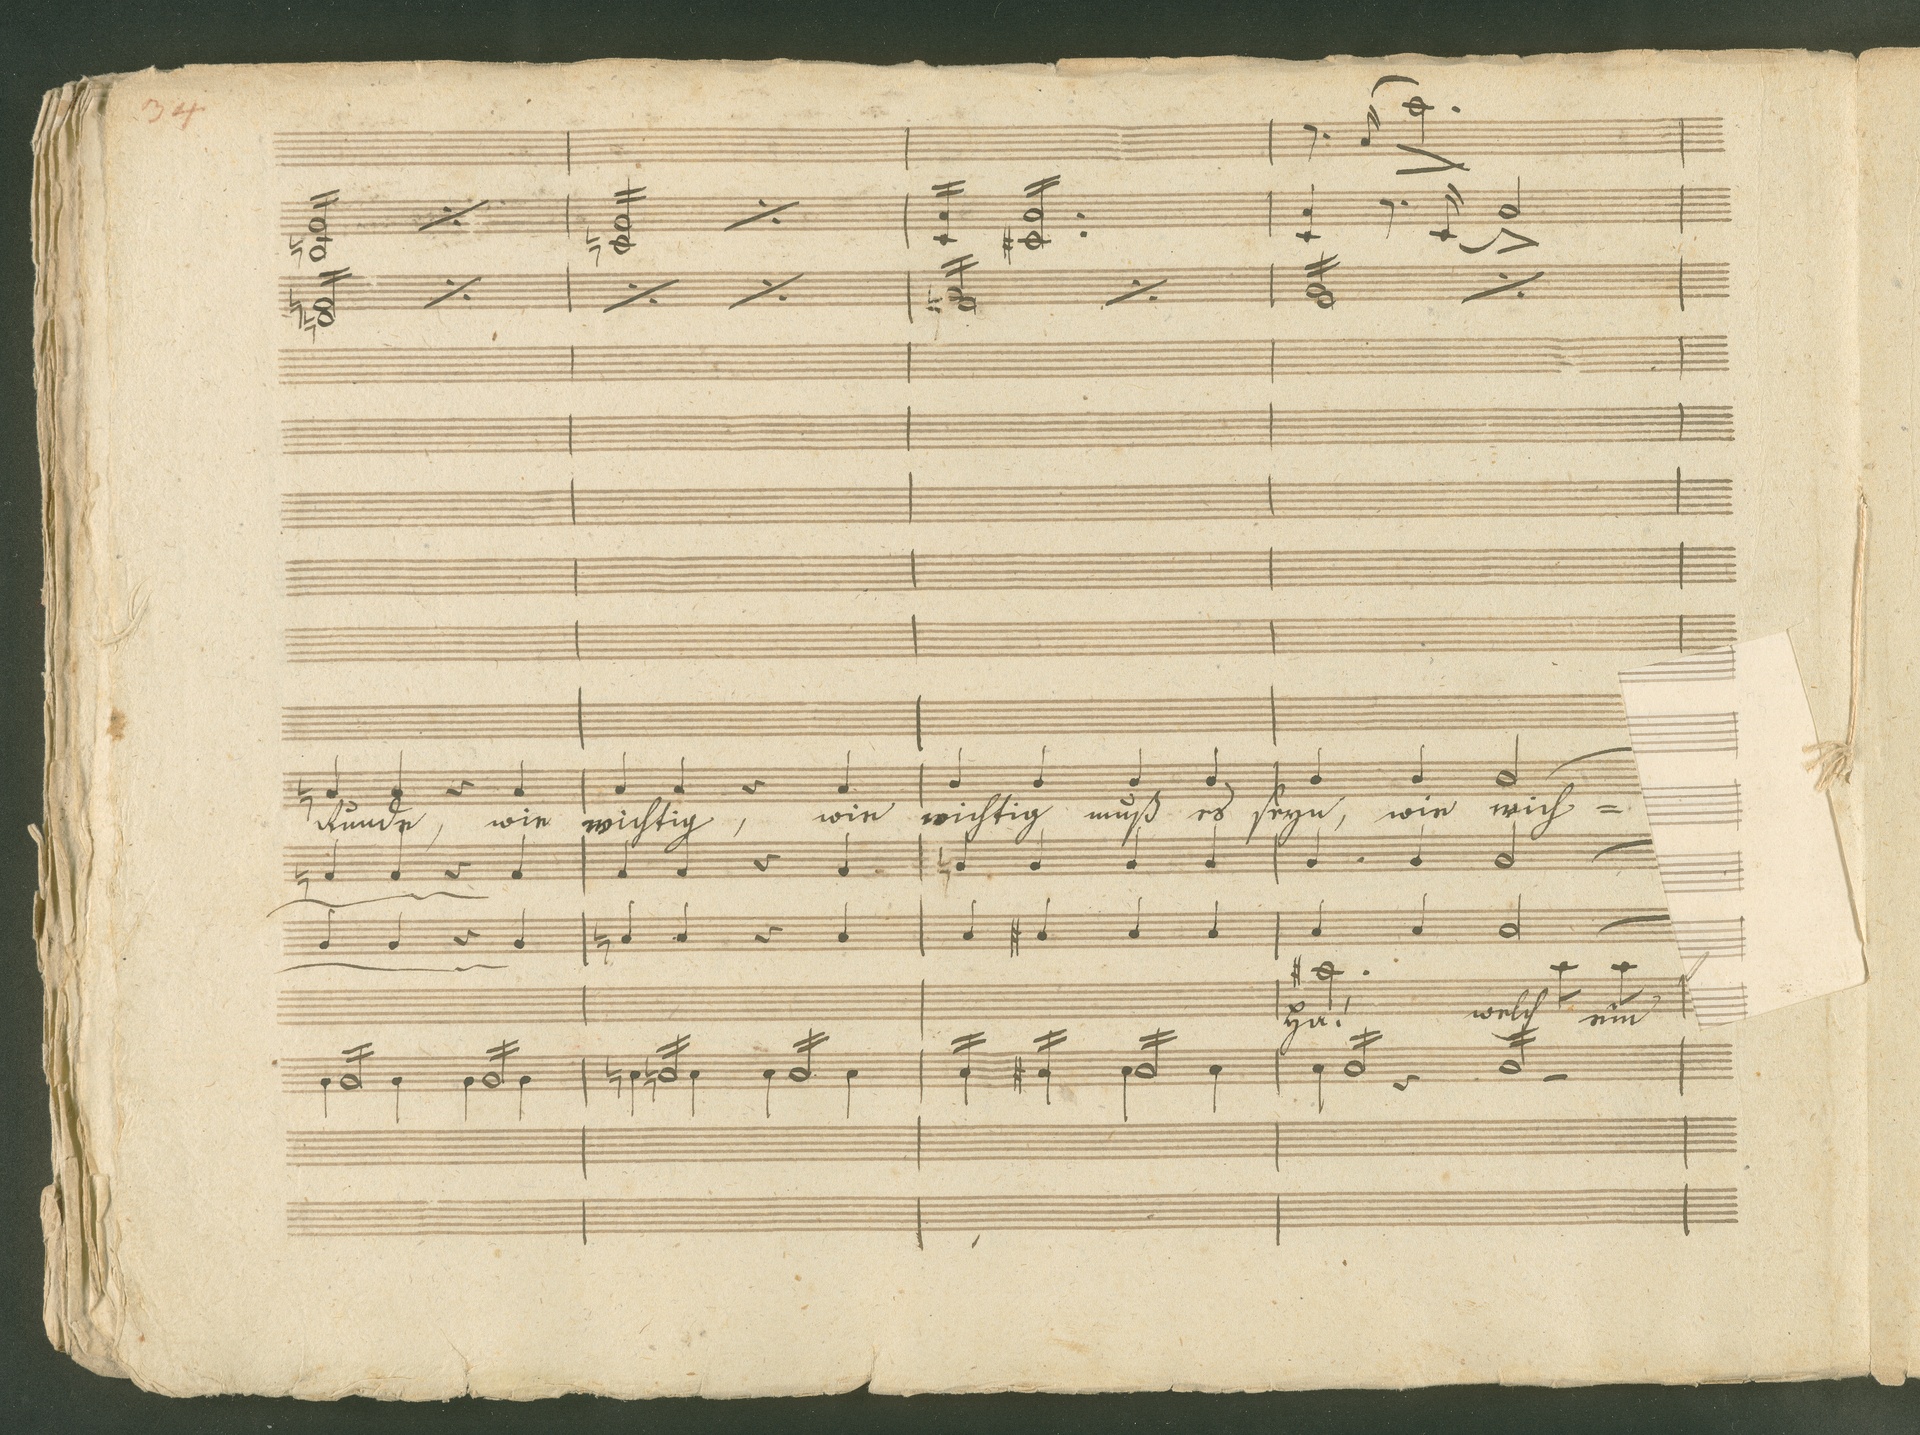 34
Kunde, wie wichtig, wie wichtig muß es seyn, wie wich=
Ha! welch ein